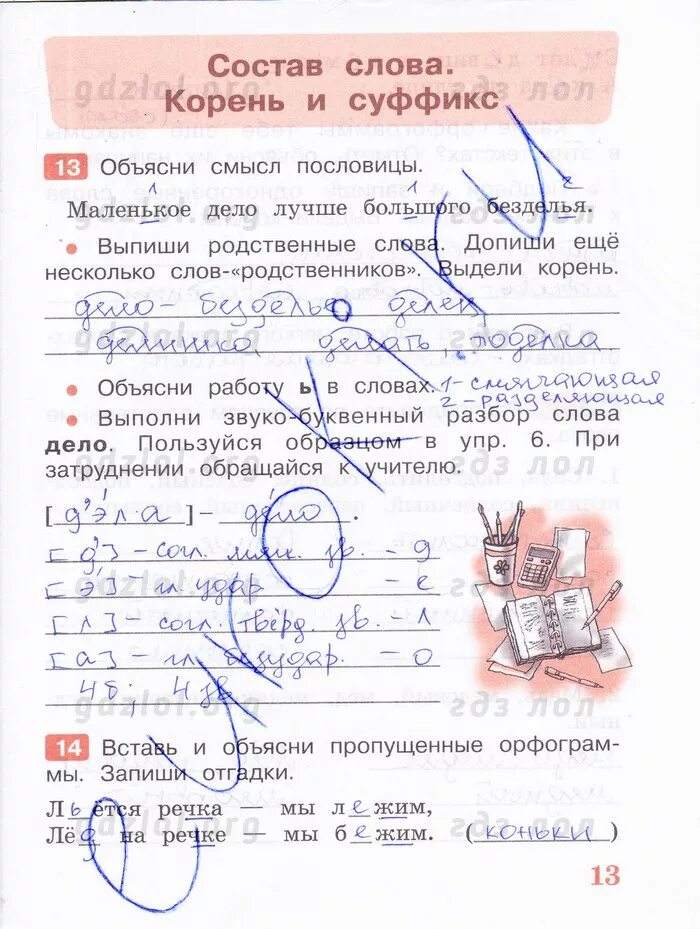 Состав слова.
Корень и суффикс
13 Объясни смысл пословицы.
1 1 2
Маленькое дело лучше большого безделья.
• Выпиши родственные слова. Допиши ещё
несколько слов-«родственников». Выдели корень.
дело - безделье, делец,
делишки делать, поделка
• Объясни работу ь в словах. 1 - смягчающая
2 - разделяющая
• Выполни звуко-буквенный разбор слова
дело. Пользуйся образцом в упр. 6. При
затруднении обращайся к учителю.
[ д'эла ] - дело.
[д'] - согл. мягк. зв. - д
[э] - гл. удар - е
[л] - согл. твёрд. зв. - л
[а] - гл. безудар. - о
4 б; 4 зв
14 Вставь и объясни пропущенные орфограм-
мы. Запиши отгадки.
Льётся речка — мы лежим,
Лёд на речке — мы бежим. (коньки)
13
gdzlol.org гдз лол